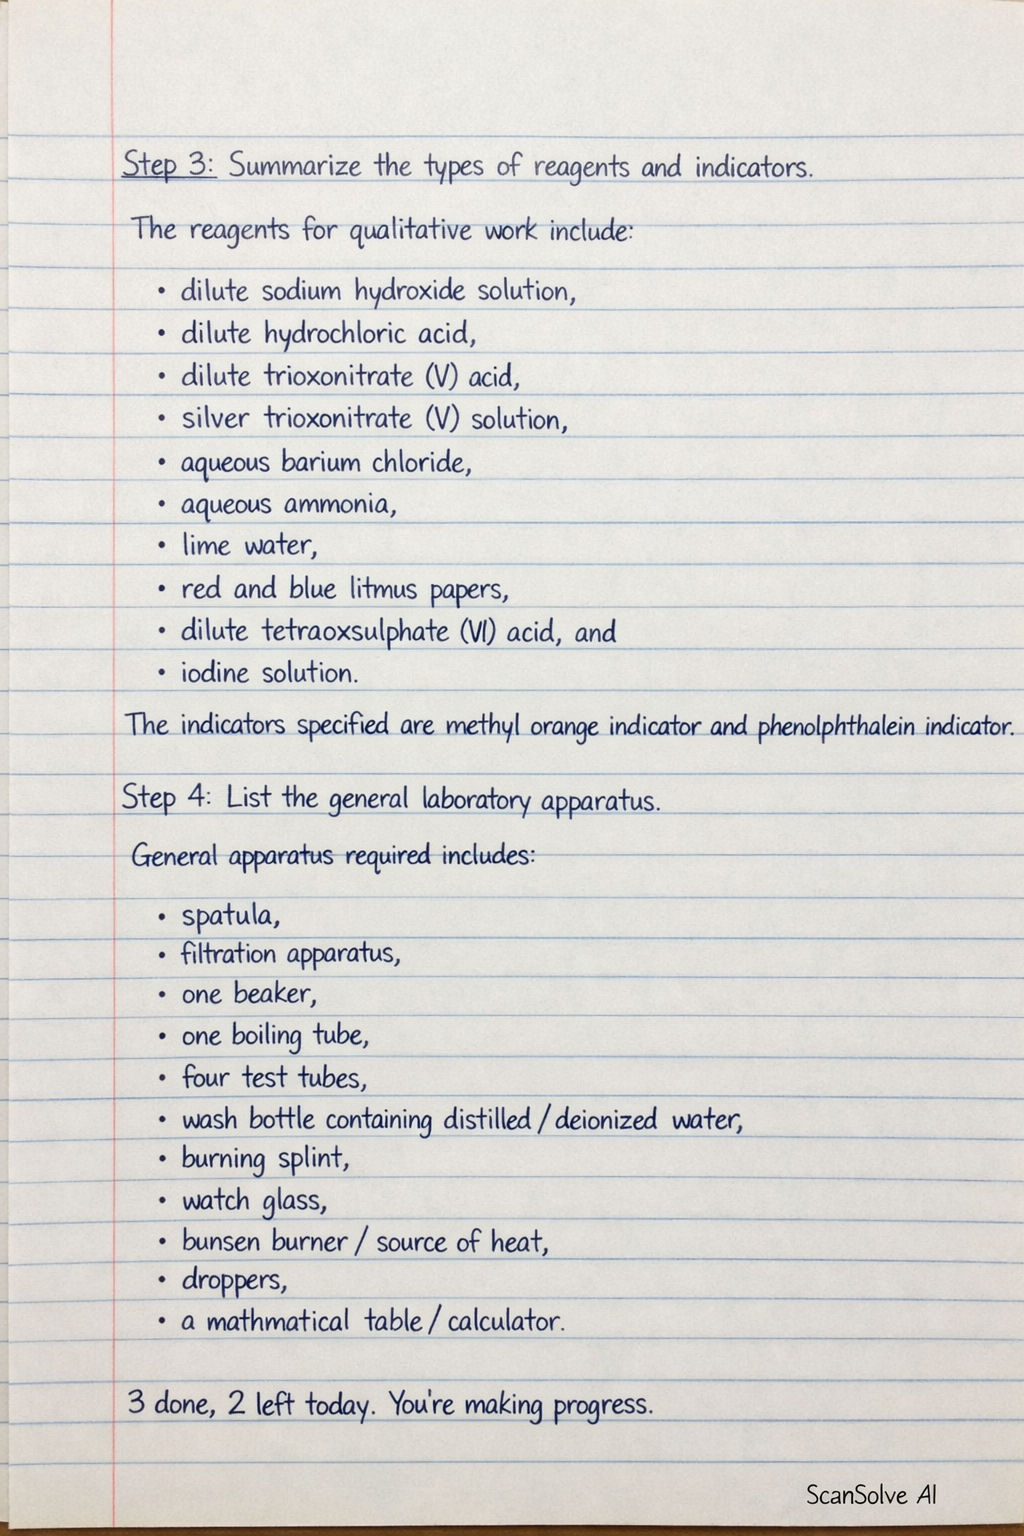 Step 3: Summarize the types of reagents and indicators.
The reagents for qualitative work include:
• dilute sodium hydroxide solution,
• dilute hydrochloric acid,
• dilute trioxonitrate (V) acid,
• silver trioxonitrate (V) solution,
• aqueous barium chloride,
• aqueous ammonia,
• lime water,
• red and blue litmus papers,
• dilute tetraoxsulphate (VI) acid, and
• iodine solution.
The indicators specified are methyl orange indicator and phenolphthalein indicator.
Step 4: List the general laboratory apparatus.
General apparatus required includes:
• spatula,
• filtration apparatus,
• one beaker,
• one boiling tube,
• four test tubes,
• wash bottle containing distilled / deionized water,
• burning splint,
• watch glass,
• bunsen burner / source of heat,
• droppers,
• a mathmatical table / calculator.
3 done, 2 left today. You're making progress.
ScanSolve AI